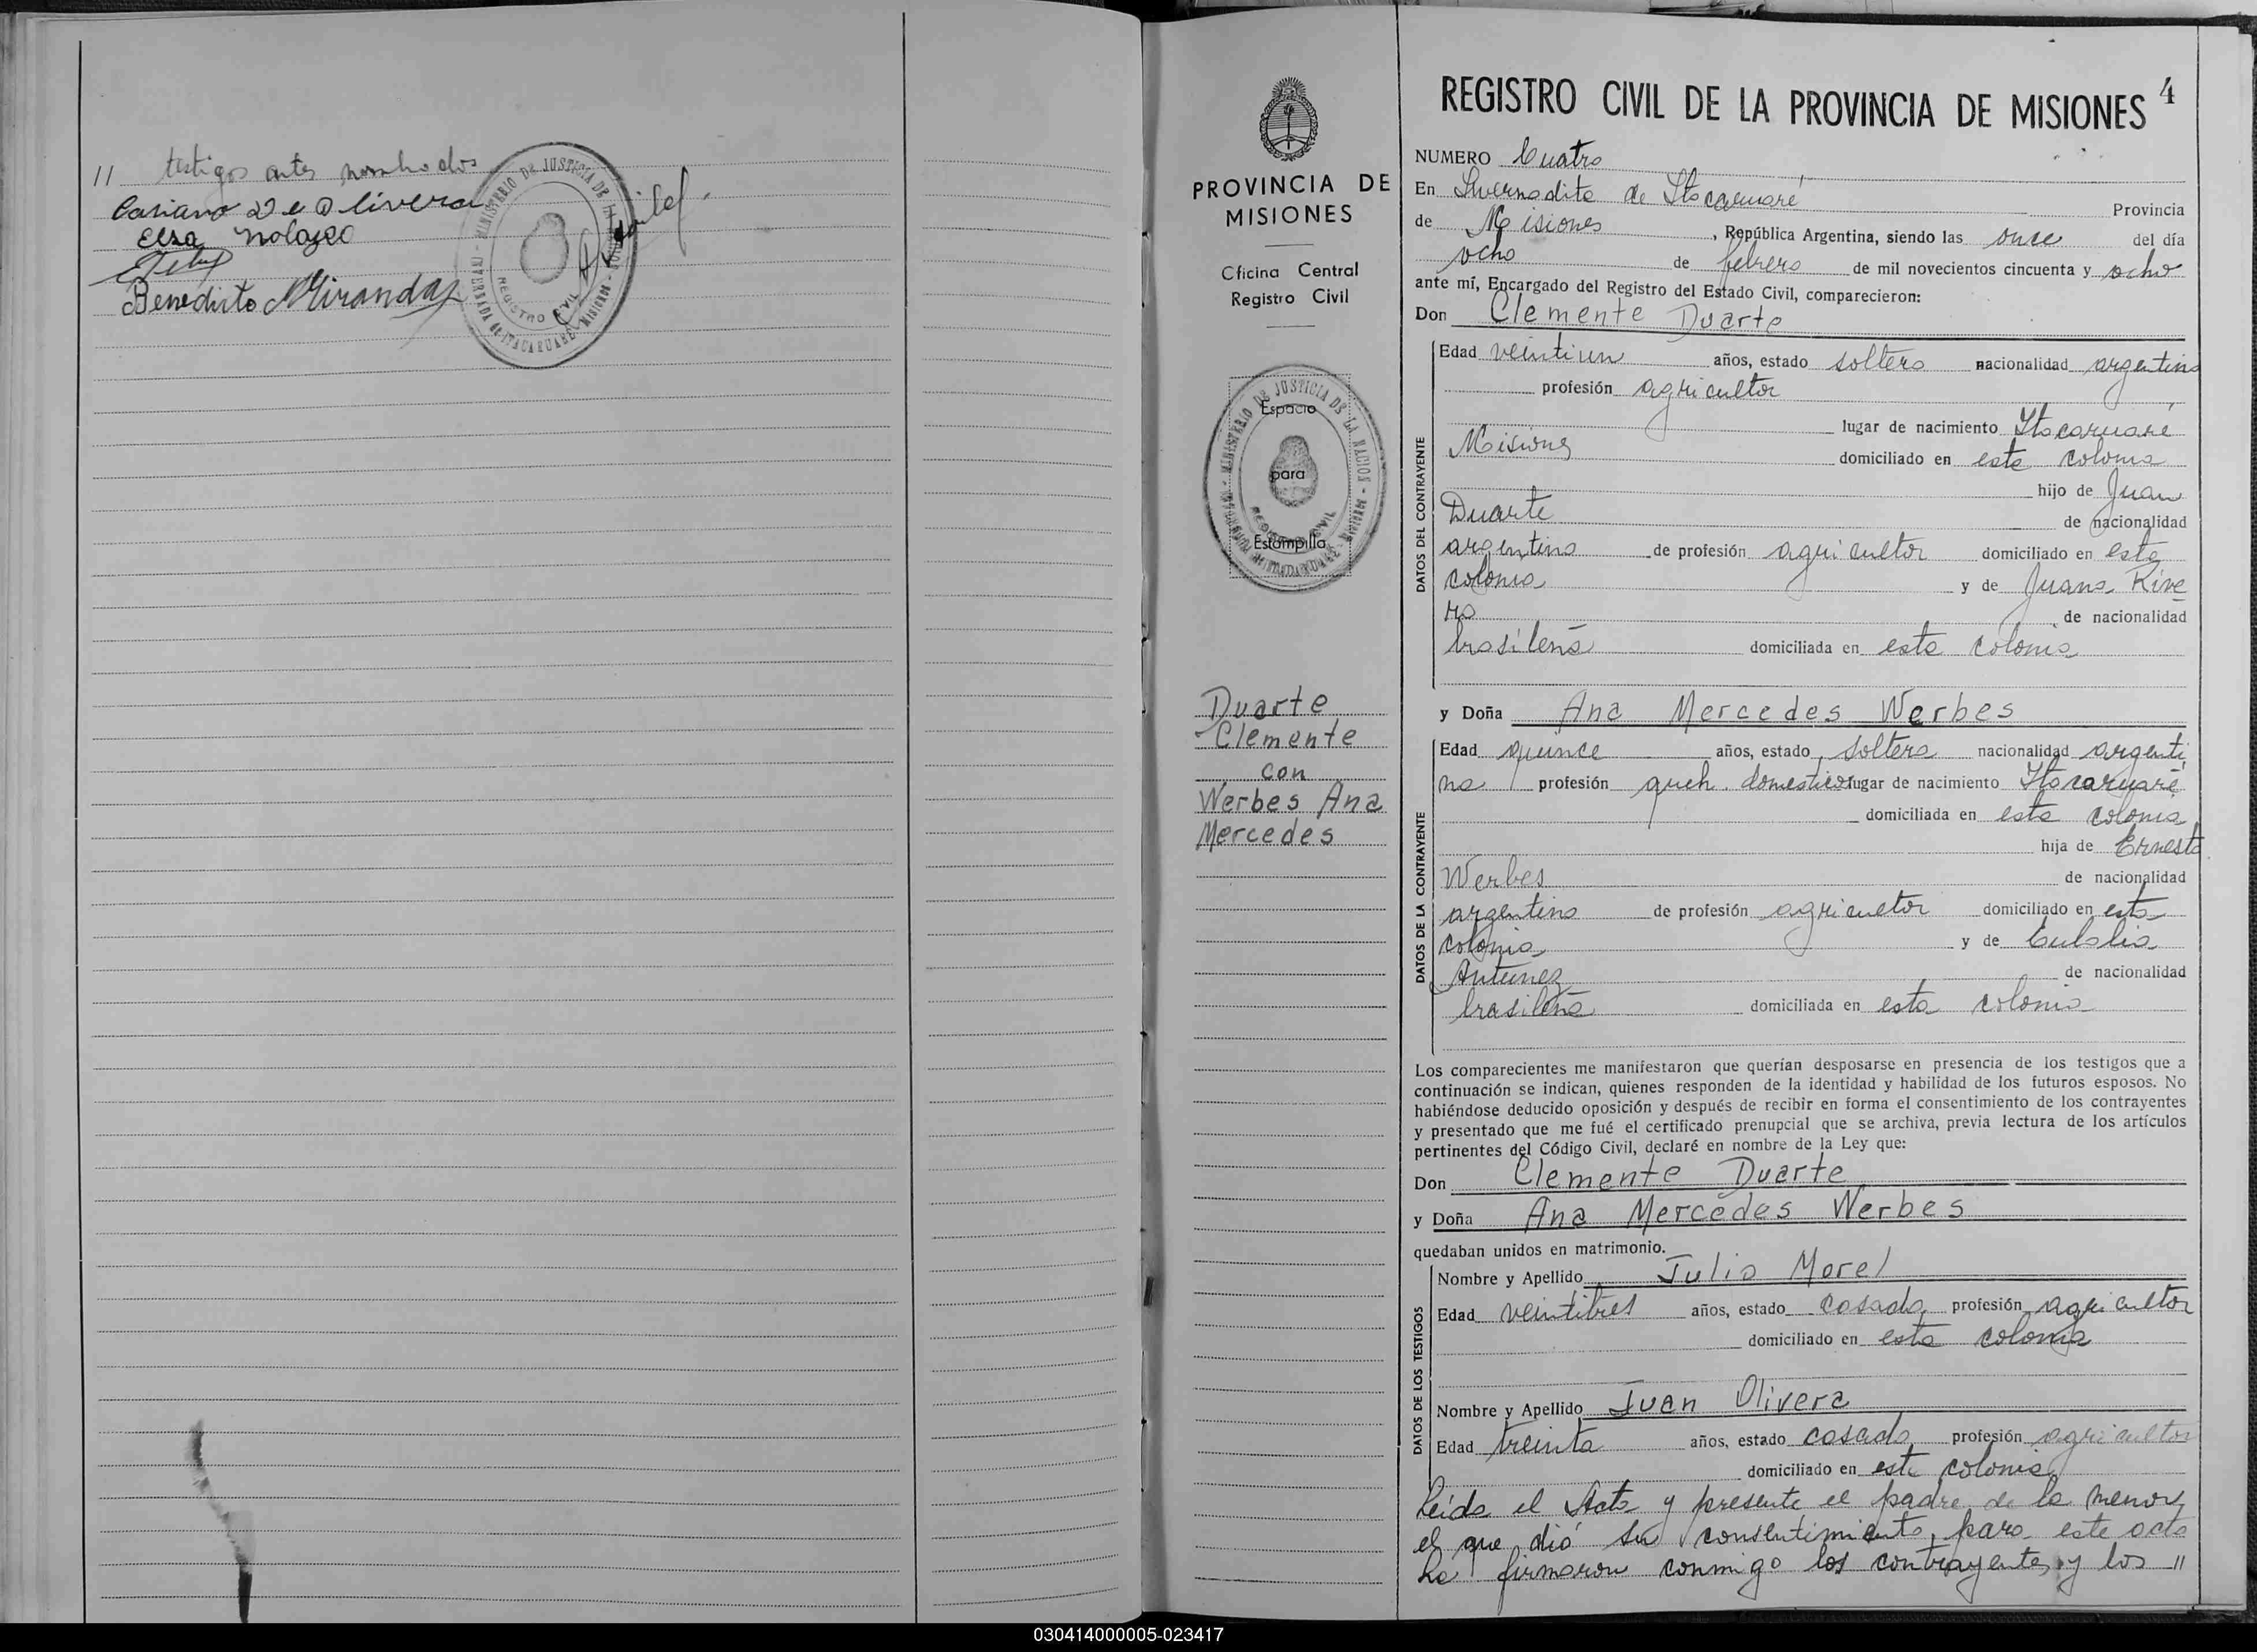 // testigos antes nombrados
Casiano De Olivera
Elsa Nolazco
Benedicto Miranda
MINISTERIO DE JUSTICIA DE LA
REGISTRO CIVIL
MISIONES
4
PROVINCIA DE
MISIONES
Oficina Central
Registro Civil
MINISTERIO DE JUSTICIA DE LA NACION
REGISTRO CIVIL
Espacio
para
Estampilla
Duarte
Clemente
con
Werbes Ana
Mercedes
REGISTRO CIVIL DE LA PROVINCIA DE MISIONES
NUMERO Cuatro
En Invernadita de Itacaruaré Provincia
de Misiones, República Argentina, siendo las once del día
ocho de febrero de mil novecientos cincuenta y ocho
ante mí, Encargado del Registro del Estado Civil, comparecieron:
Don Clemente Duarte
DATOS DEL CONTRAYENTE
Edad veintiun años, estado soltero nacionalidad argentino
profesión agricultor
lugar de nacimiento Itacaruaré
Misiones domiciliado en esta colonia
hijo de Juan
Duarte de nacionalidad
argentina de profesión agricultor domiciliado en esta
colonia y de Juana Rive
ro de nacionalidad
brasileña domiciliada en esta colonia
y Doña Ana Mercedes Werbes
DATOS DE LA CONTRAYENTE
Edad quince años, estado soltera nacionalidad argenti
na profesión queh. domestico lugar de nacimiento Itacaruaré
domiciliada en esta colonia
hija de Ernesto
Werbes de nacionalidad
argentina de profesión agricultor domiciliado en esta
colonia y de Eulalia
Antunez de nacionalidad
brasileña domiciliada en esta colonia
Los comparecientes me manifestaron que querían desposarse en presencia de los testigos que a
continuación se indican, quienes responden de la identidad y habilidad de los futuros esposos. No
habiéndose deducido oposición y después de recibir en forma el consentimiento de los contrayentes
y presentado que me fué el certificado prenupcial que se archiva, previa lectura de los artículos
pertinentes del Código Civil, declaré en nombre de la Ley que:
Don Clemente Duarte
y Doña Ana Mercedes Werbes
quedaban unidos en matrimonio.
DATOS DE LOS TESTIGOS
Nombre y Apellido Julio Morel
Edad veintitres años, estado casado profesión agricultor
domiciliado en esta colonia
Nombre y Apellido Juan Olivera
Edad treinta años, estado casado profesión agricultor
domiciliado en esta colonia
Leida el Acta y presente el padre de la menor,
el que dió su consentimiento para este acto
la firmaron conmigo los contrayentes y los //
030414000005-023417